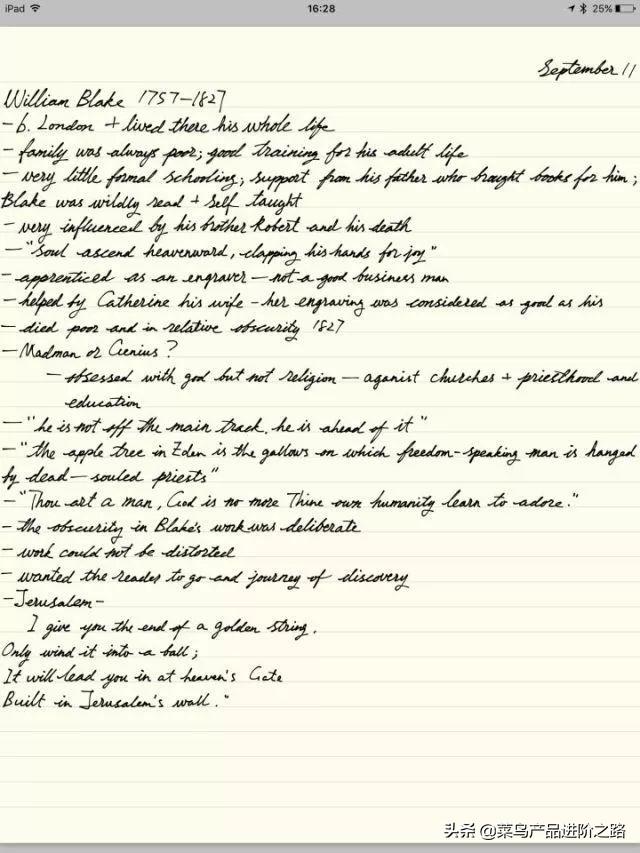 iPad 16:28 25%
September 11
William Blake 1757-1827
- b. London + lived there his whole life
- family was always poor; good training for his adult life
- very little formal schooling; support from his father who brought books for him;
Blake was wildly read + self taught
- very influenced by his brother Robert and his death
- "Soul ascend heavenward, clapping his hands for joy"
- apprenticed as an engraver — not a good business man
- helped by Catherine his wife - her engraving was considered as good as his
- died poor and in relative obscurity 1827
- Madman or Genius?
- obsessed with god but not religion — aganist churches + priesthood and
education
- "he is not off the main track. he is ahead of it"
- "the apple tree in Eden is the gallows on which freedom-speaking man is hanged
by dead-souled priests"
- "Thou art a man, God is no more Thine own humanity learn to adore."
- the obscurity in Blake's work was deliberate
- work could not be distorted
- wanted the reader to go and journey of discovery
- Jerusalem -
I give you the end of a golden string.
Only wind it into a ball;
It will lead you in at heaven's Gate
Built in Jerusalem's wall."
头条 @菜鸟产品进阶之路